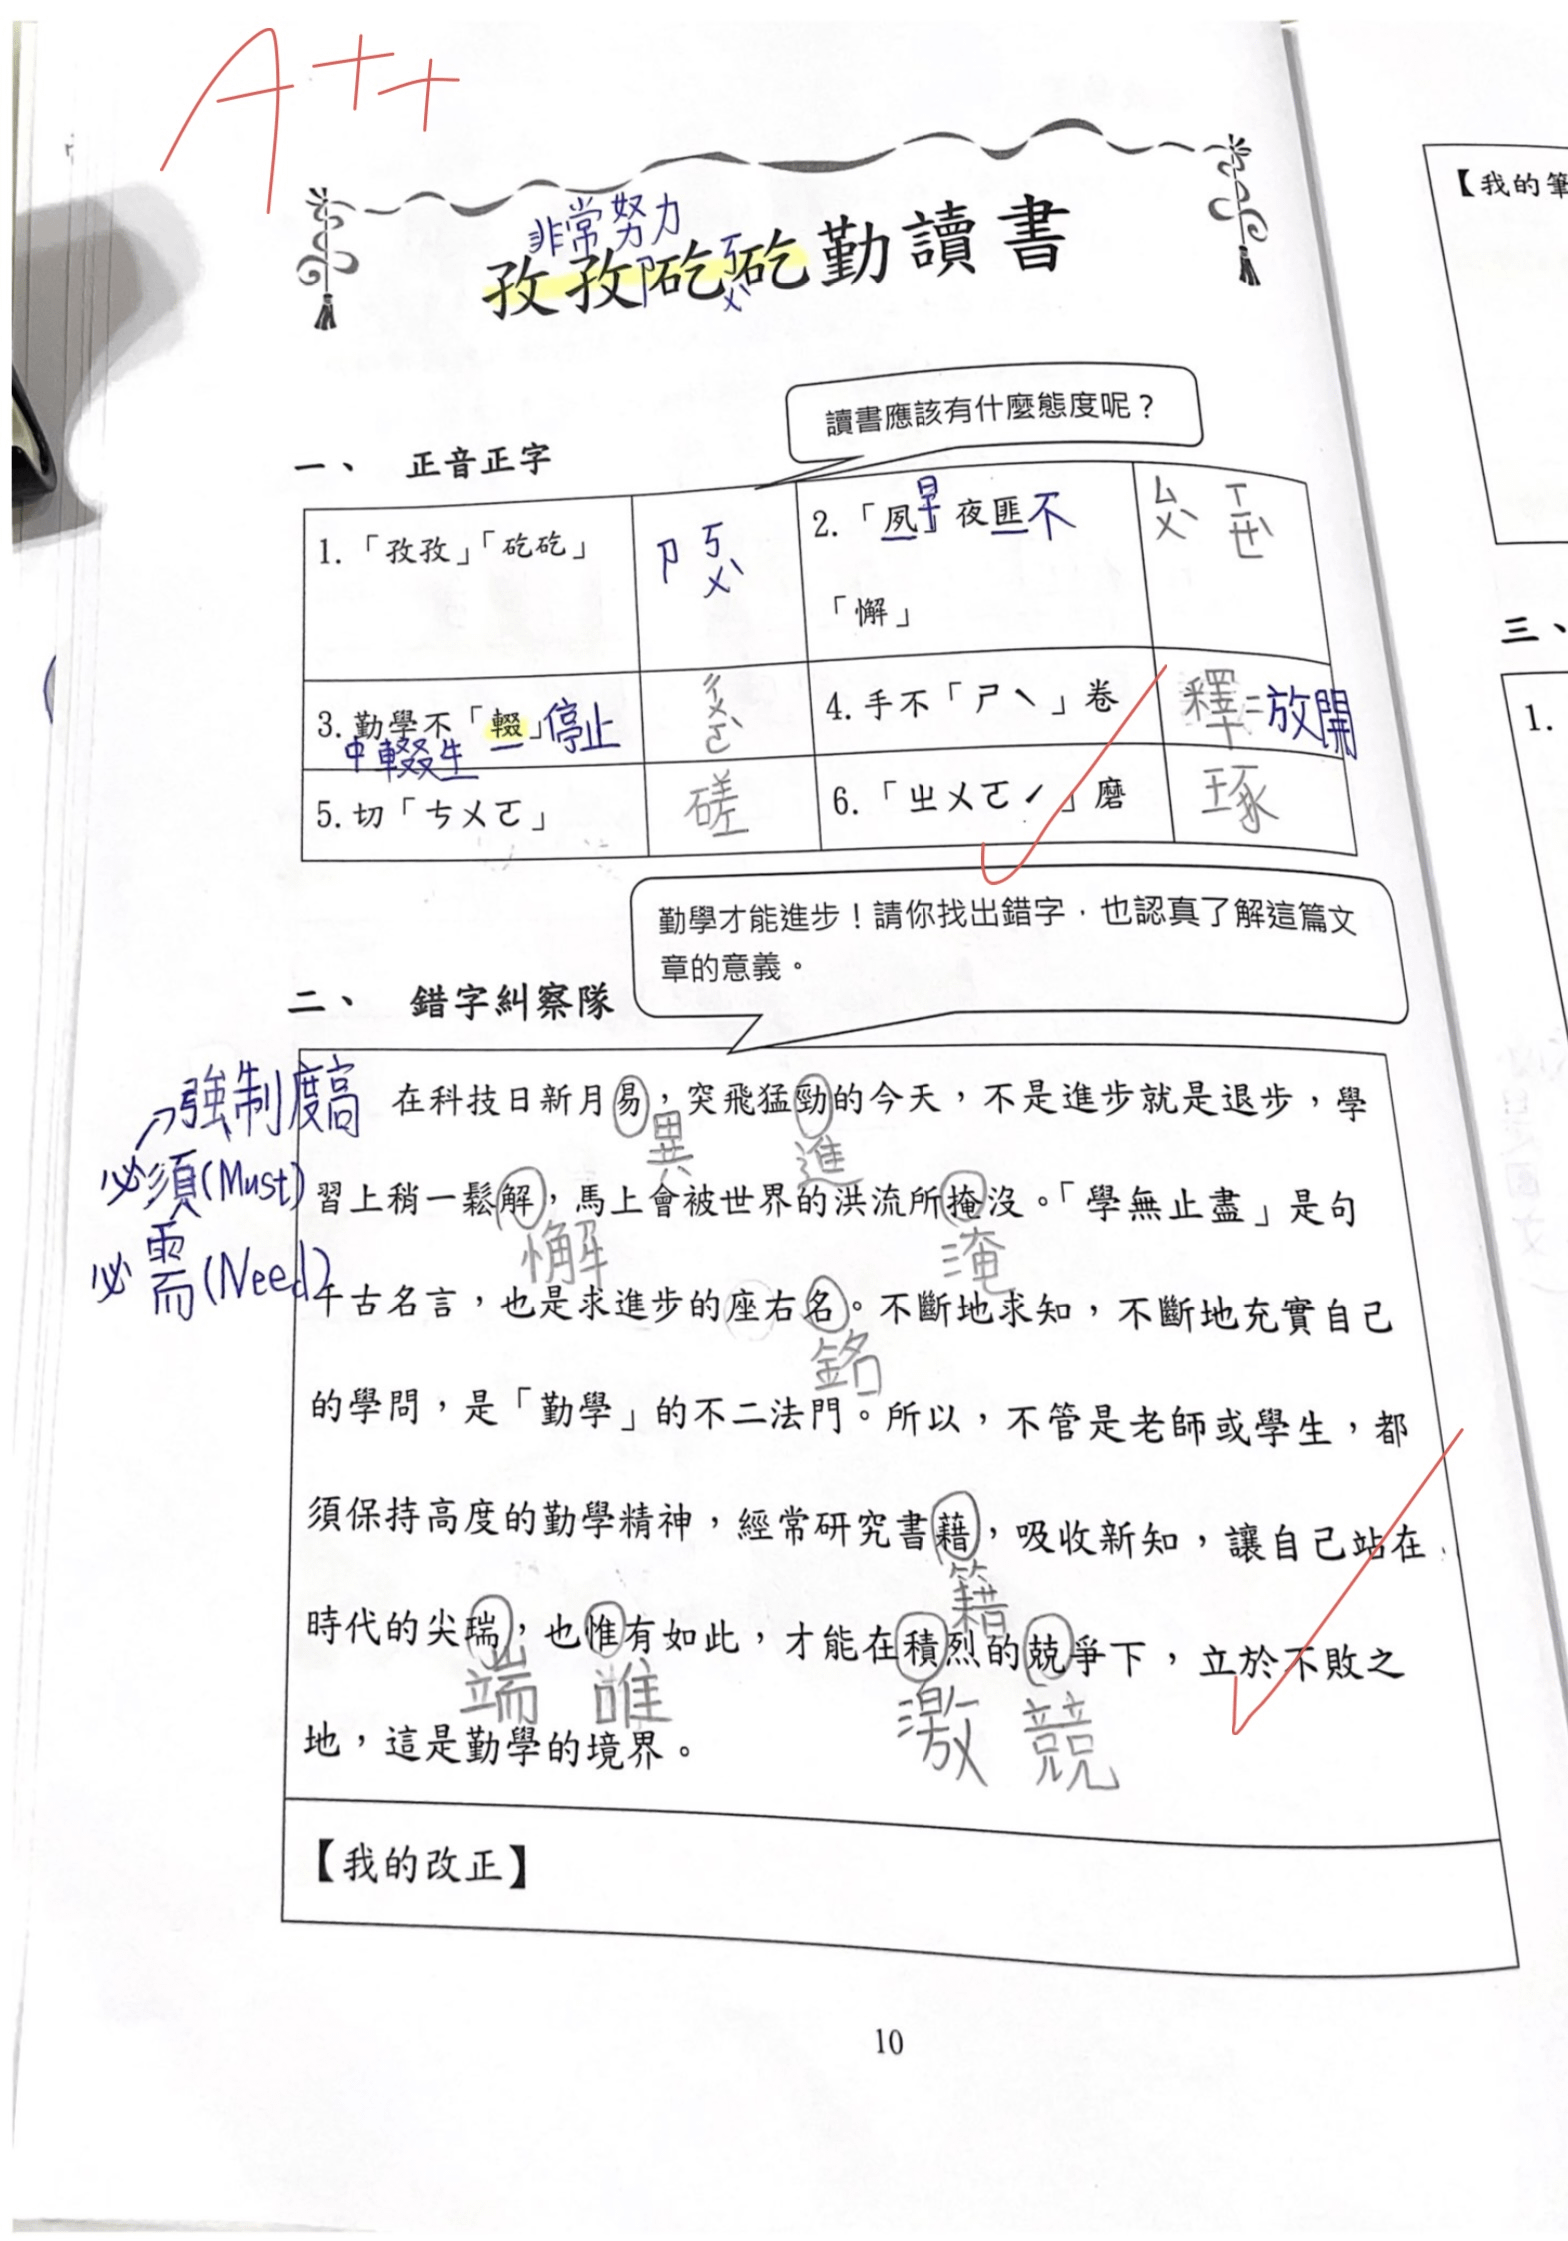 A++
非常努力
孜孜矻矻勤讀書
ㄗ ㄎㄨˋ
讀書應該有什麼態度呢？
一、 正音正字
1.「孜孜」「矻矻」 ㄗ ㄎㄨˋ
2.「夙」早夜匪不「懈」 ㄙㄨˋ ㄒㄧㄝˋ
3.勤學不「輟」停止 ㄔㄨㄛˋ
中輟生
4.手不「ㄕˋ」卷 釋=放開
5.切「ㄘㄨㄛ」 磋
6.「ㄓㄨㄛˊ」磨 琢
勤學才能進步！請你找出錯字，也認真了解這篇文
章的意義。
二、 錯字糾察隊
→強制度高
必須(Must)
必需(Need)
在科技日新月易，突飛猛勁的今天，不是進步就是退步，學
異 進
習上稍一鬆解，馬上會被世界的洪流所掩沒。「學無止盡」是句
懈 淹
千古名言，也是求進步的座右名。不斷地求知，不斷地充實自己
銘
的學問，是「勤學」的不二法門。所以，不管是老師或學生，都
須保持高度的勤學精神，經常研究書藉，吸收新知，讓自己站在
籍
時代的尖瑞，也惟有如此，才能在積烈的兢爭下，立於不敗之
端 誰 激 競
地，這是勤學的境界。
【我的改正】
10
【我的筆
三、
1.